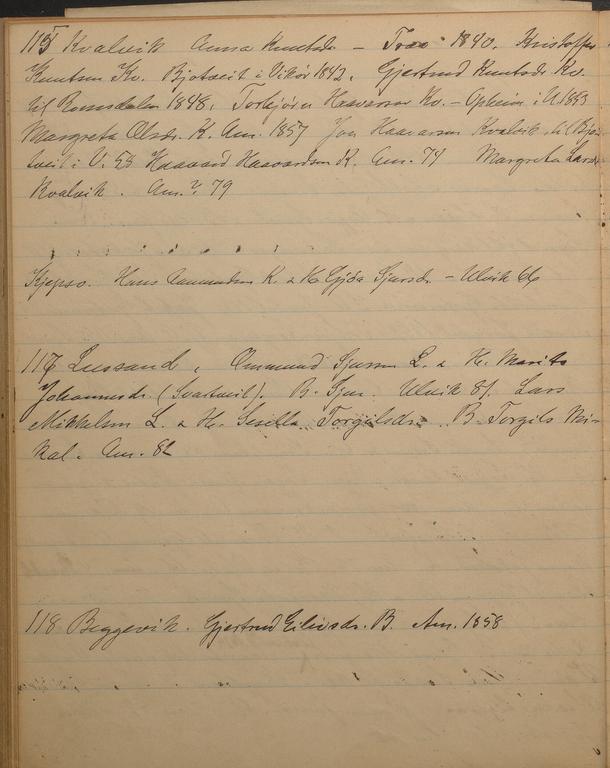 115 Kvalvik Anna Knutsdr – Tvao 1840. Kristoffer
Knutsen Kv. Bjotveit i Vikör 1842. Gjertrud Knutsdr Kv.
til Romsdalen 1848. Torbjörn Haavarson Kv. – Opheim i U. 1853
Margreta Olsdr. K. Am. 1857 Jon Haavarson Kvalvik til (Bjo-
tveit i V. 58 Haavard Haavardson K. Am. 74 Margreta Larsdr
Kvalvik. Am.? 79
Kjepso. Hans Aamundson K. & H. Gjöa Sjursdr. – Ulvik 66
117 Lussand. Ommund Sjurson L. & H. Marita
Johannesdr. (Svartveit). B. Sjur. Ulvik 81. Lars
Mikkelson L. & H. Sesella Torgilsdr. B. Torgils Mi-
kal. Am. 82
118 Beggevik. Gjertrud Eilivsdr. B. Am. 1858